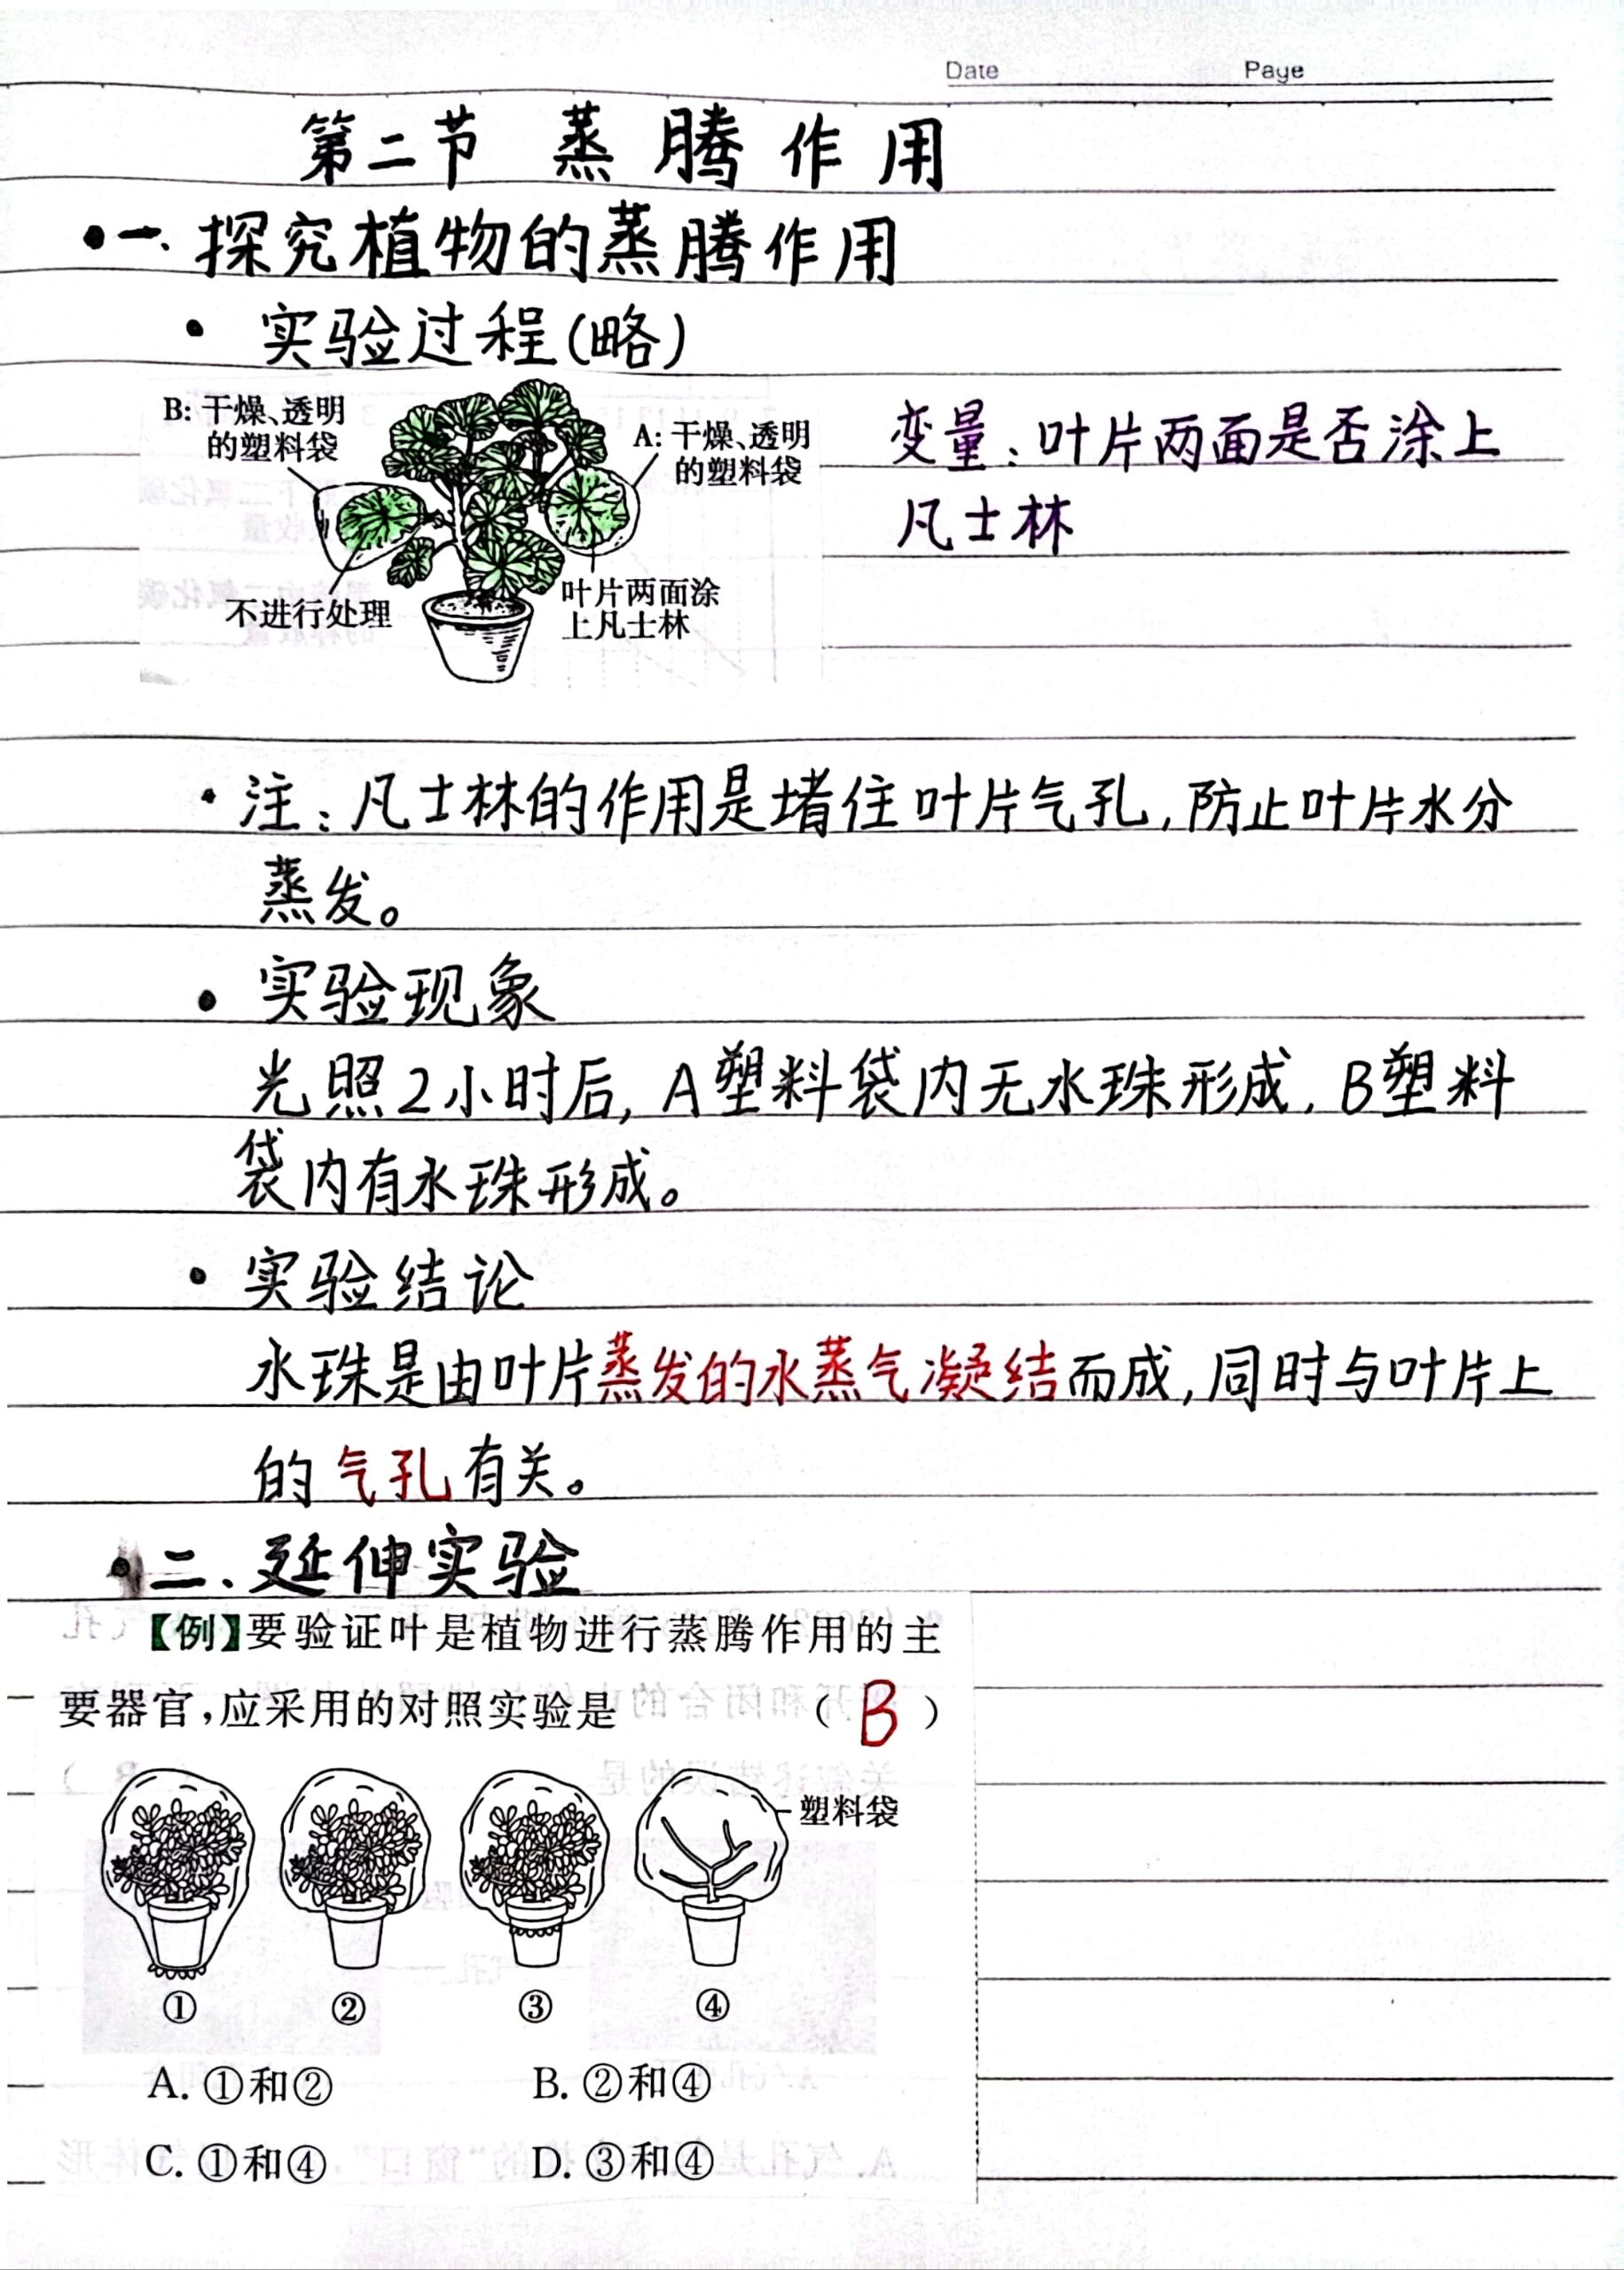 Date Page
第二节 蒸腾作用
一、探究植物的蒸腾作用
实验过程(略)
B:干燥、透明
的塑料袋
A:干燥、透明
的塑料袋
不进行处理
叶片两面涂
上凡士林
变量:叶片两面是否涂上
凡士林
注:凡士林的作用是堵住叶片气孔,防止叶片水分
蒸发。
实验现象
光照2小时后,A塑料袋内无水珠形成,B塑料
袋内有水珠形成。
实验结论
水珠是由叶片蒸发的水蒸气凝结而成,同时与叶片上
的气孔有关。
二、延伸实验
【例】要验证叶是植物进行蒸腾作用的主
要器官,应采用的对照实验是 (B)
塑料袋
① ② ③ ④
A. ①和② B. ②和④
C. ①和④ D. ③和④